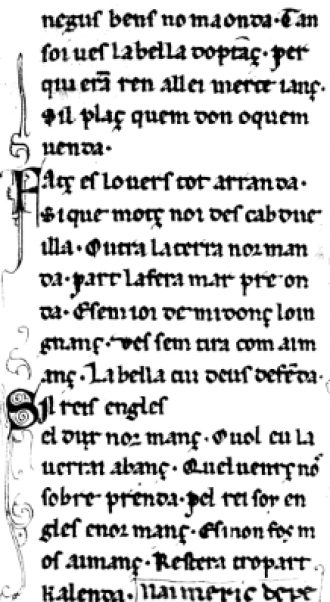 negus bens no maonda · Tan
soi ues la bella doptãç · per
qui erã ren allei merce ianç ·
Sil plaç quem don oquem
uenda ·
Fatç es louers tot arranda ·
Si que motç noi descabdue
illa · Outra laterra norman
da · part lafera mar preon
da · Esem ioi de midonç loin
gnanç · ves sem tira com aim
anç · La bella cui deus defẽda ·
Sil reis engles
el duc normanç · Ouol eu la
uerrai abanç · Queluernç nõ
sobre prenda · pel rei soi en
gles enormanç · Esinon fos m
os aimanç · Restera tropart
Kalenda · Naimeric depe